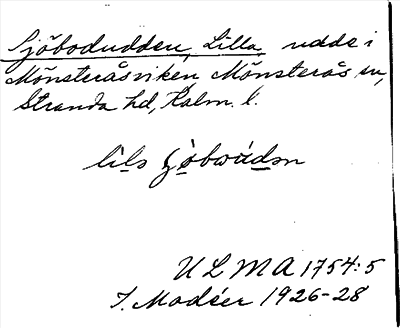 Sjöbodudden, Lilla, udde i
Mönsteråsviken Mönsterås sn,
Stranda hd, Kalm. l.
ULMA 1754:5
I. Modéer 1926-28